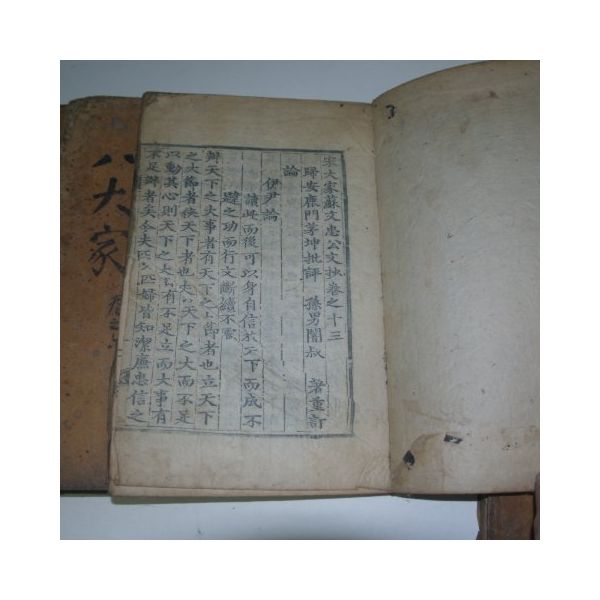 宋大家蘇文忠公文抄卷之十三
歸安鹿門茅坤批評 孫男闇叔 著重訂
論
伊尹論
讀此而後可以身自信於天下而成不
韙之功而行文斷續不羈
辦天下之大事者有天下之大節者也立天下
之大節者狹天下者也夫以天下之大而不足
以動其心則天下之大節有不足立而大事有
不足辦者矣今夫匹夫匹婦皆知潔廉忠信之
八大家
卷之
3